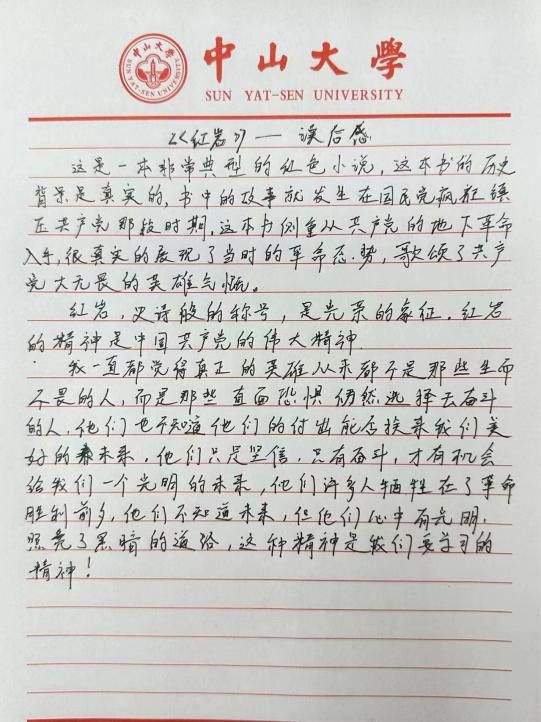 中山大學
SUN YAT-SEN UNIVERSITY
中山大学
SUN YAT-SEN UNIVERSITY
《红岩》— 读后感
这是一本非常典型的红色小说，这本书的历史
背景是真实的，书中的故事就发生在国民党疯狂镇
压共产党那段时期，这本书侧重从共产党的地下革命
入手，很真实的展现了当时的革命态势，歌颂了共产
党大无畏的英雄气慨。
红岩，史诗般的称号，是光荣的象征。红岩
的精神是中国共产党的伟大精神
我一直都觉得真正的英雄从来都不是那些生而
不畏的人，而是那些直面恐惧仍然选择去奋斗
的人，他们也不知道他们的付出能否换来我们美
好的未来，他们只是坚信，只有奋斗，才有机会
给我们一个光明的未来，他们许多人牺牲在了革命
胜利前夕，他们不知道未来，但他们心中有光明，
照亮了黑暗的道路，这种精神是我们要学习的
精神！